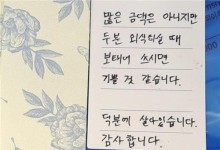 많은 금액은 아니지만
두분 외식하실 때
보태서 쓰시면
기쁠 것 같습니다.
덕분에 살아있습니다.
감사합니다.